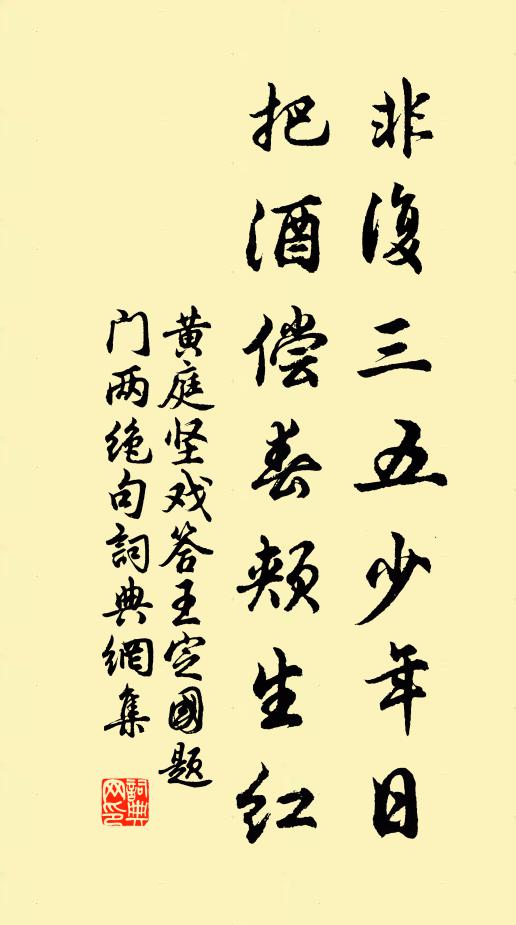 非復三五少年日
把酒偿春颊生红
黄庭坚戏答王定國题
门两绝句詞典網集
詞典网印